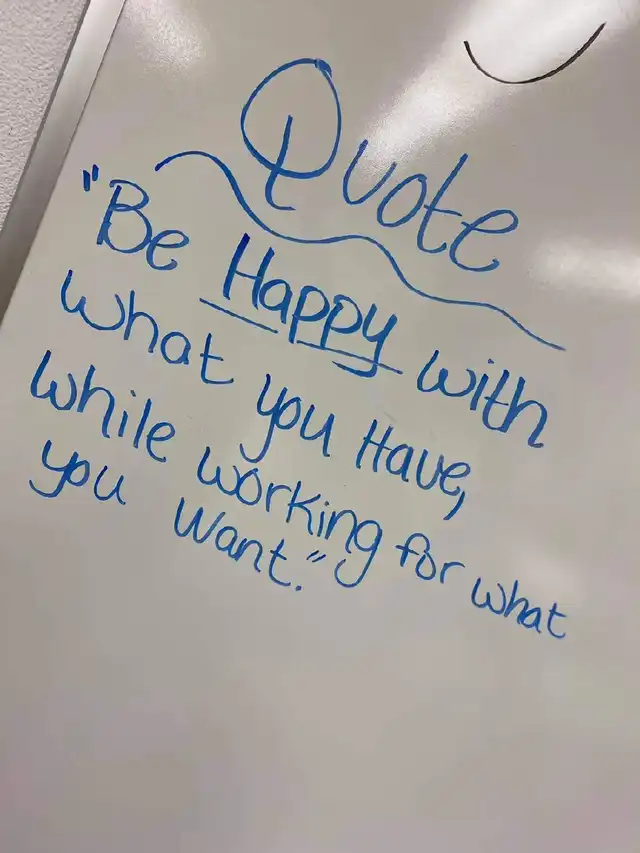 Quote
"Be Happy with
what you Have,
while working for what
you want."